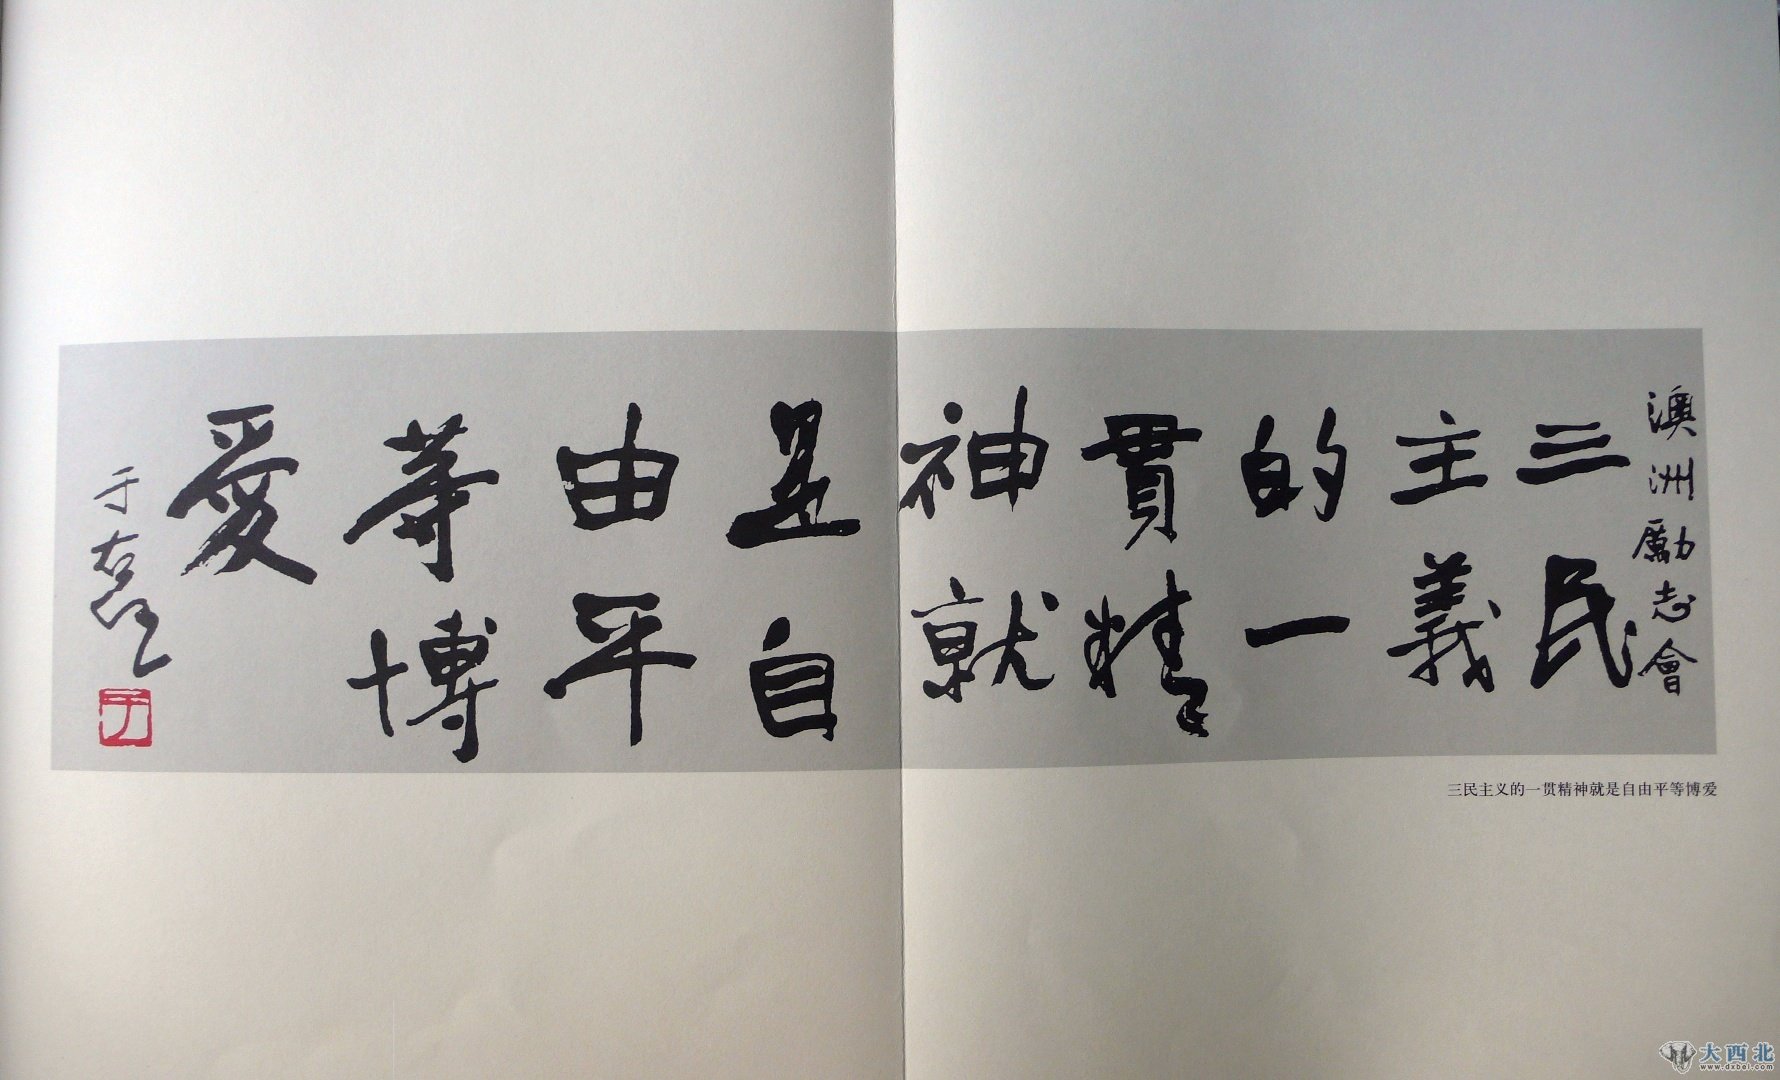 澳洲勵志會
三民
主義
的一
貫精
神就
是自
由平
等博
愛
于右任
于
三民主义的一贯精神就是自由平等博爱
大西北
www.dxbei.com